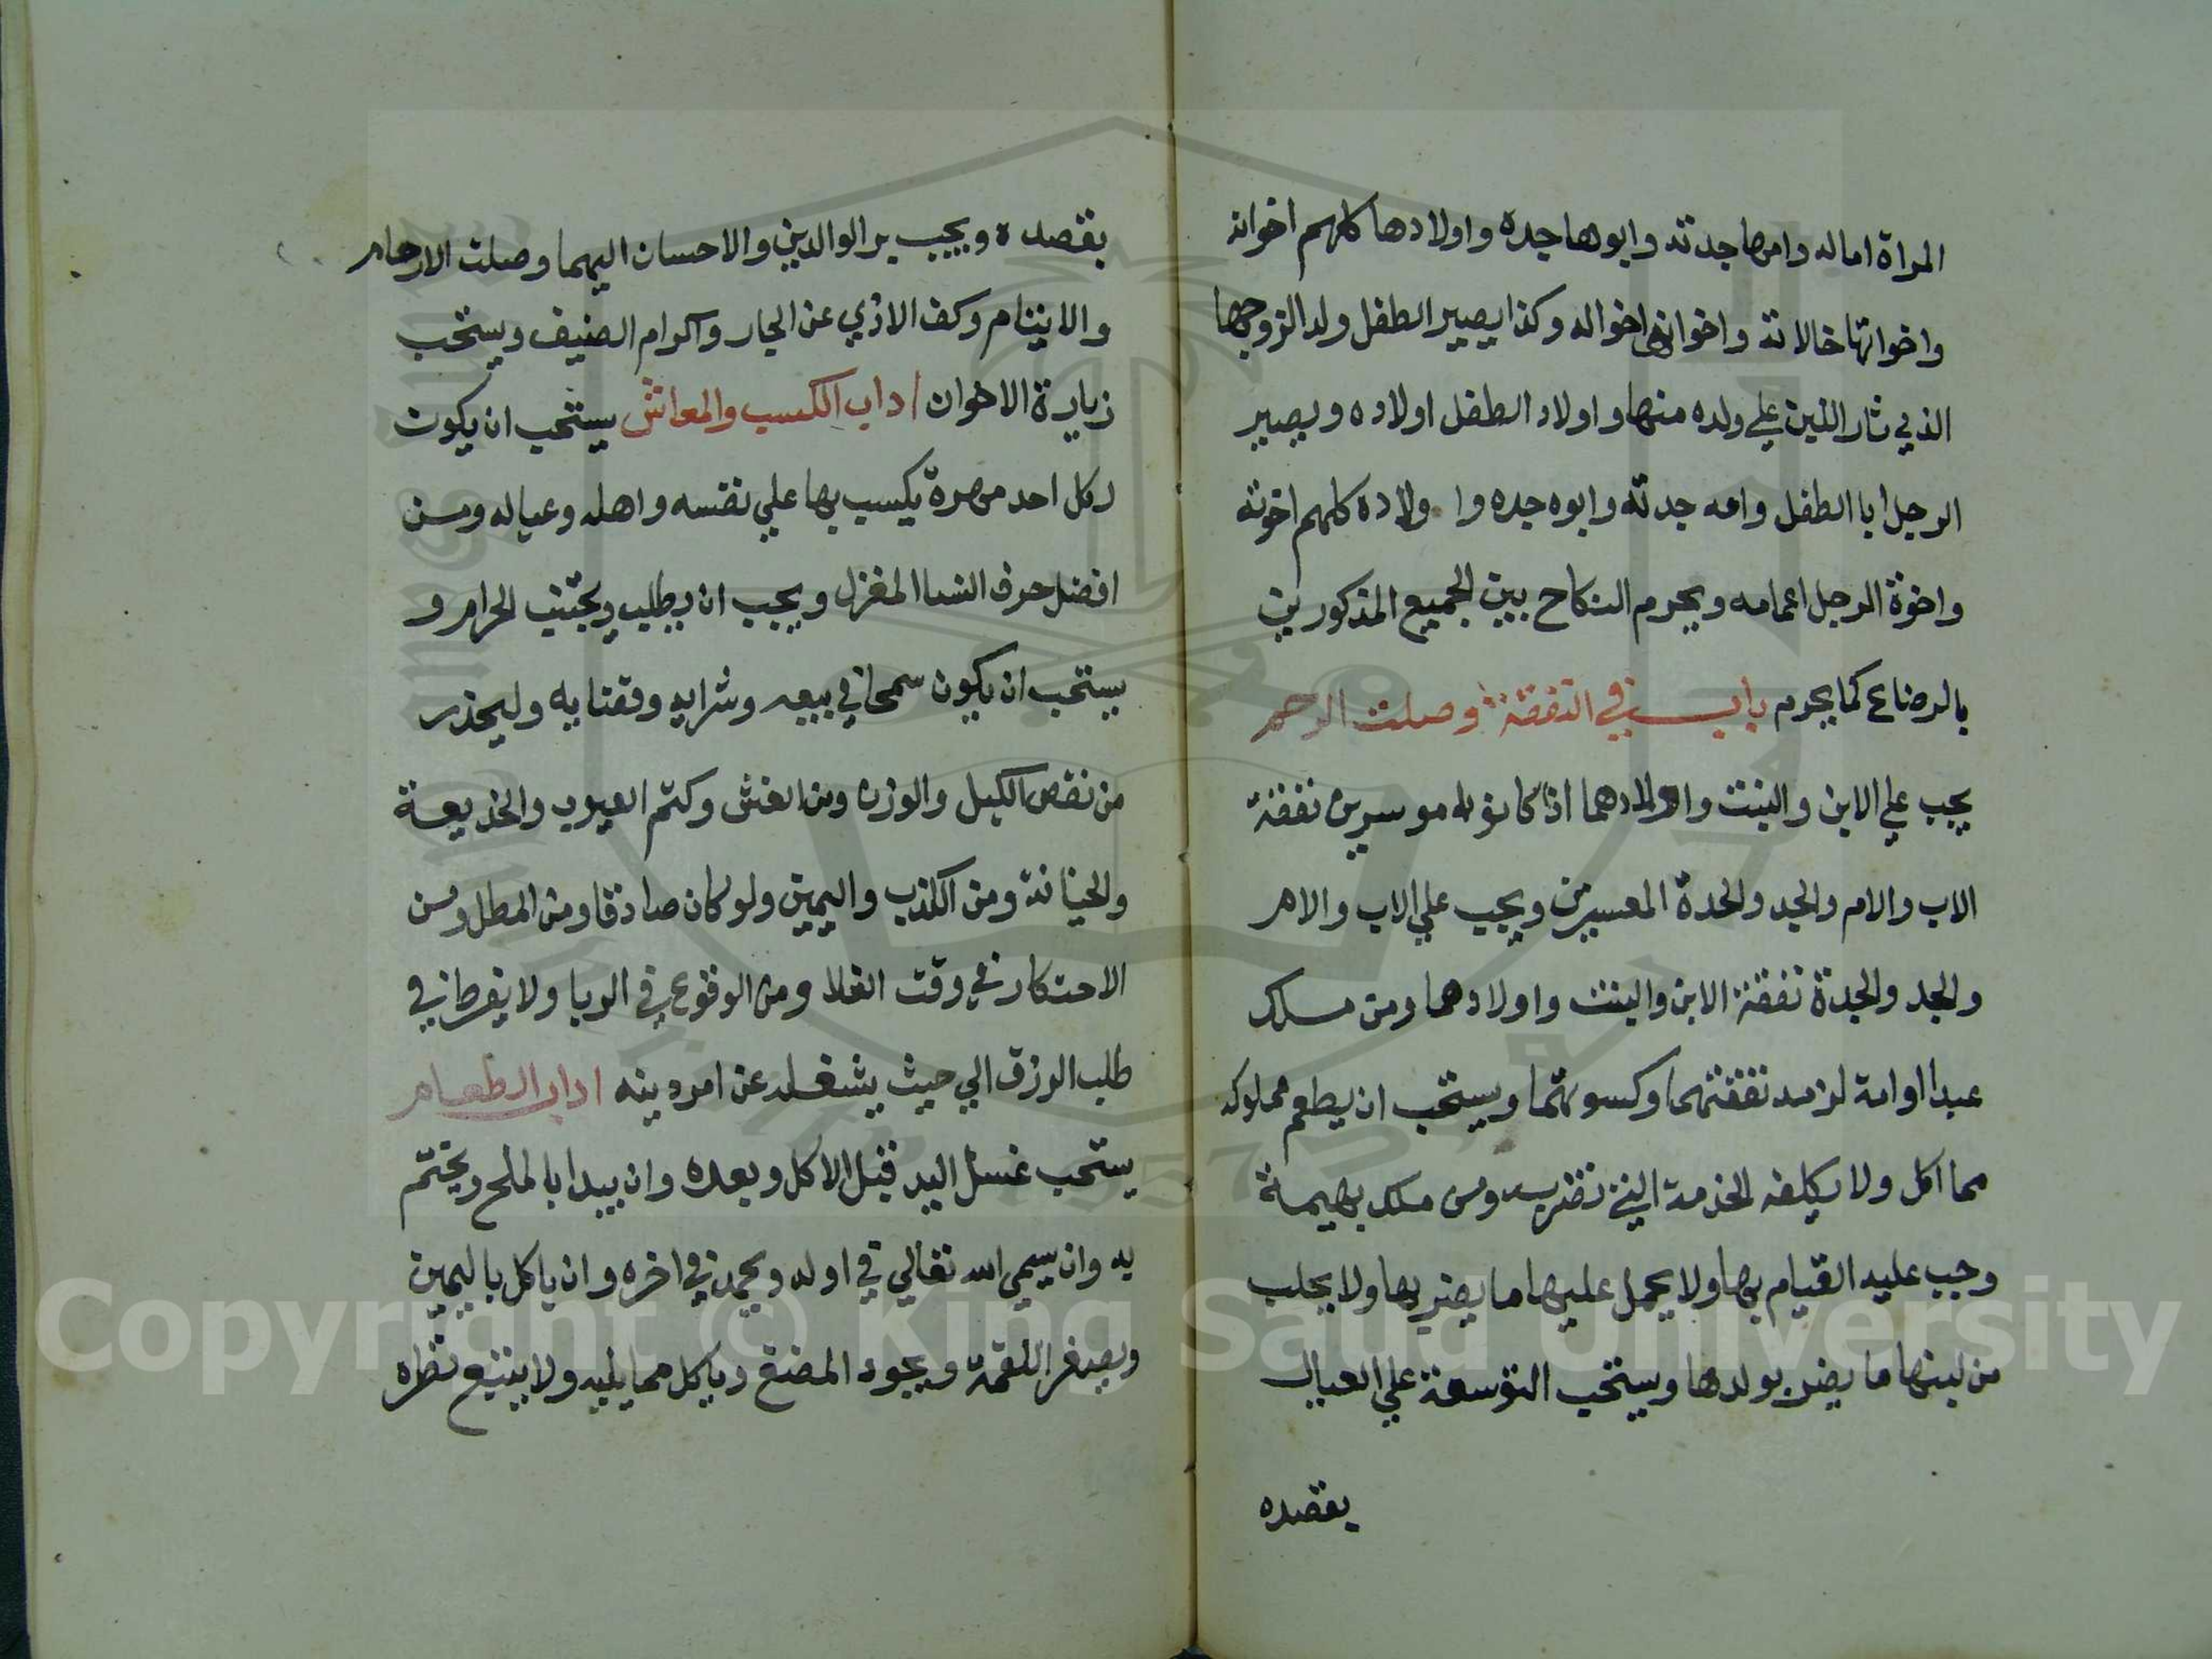 المراة اما له وامها جدته وابوها جده واولادها كلهم اخوانه
واخواتها خالاته واخوانها اخواله وكذا يصير الطفل ولد الزوجها
الذي ثار اللبن علي ولده منها واولاد الطفل اولاده ويصير
الرجل ابا الطفل وامه جدته وابوه جده واولاده كلهم اخوته
واخوة الرجل اعمامه ويحرم النكاح بين الجميع المذكورين
بالرضاع كما يحرم باب في النفقة وصلت الرحم
يجب علي الابن والبنت واولادهما اذا كانو له موسرين نفقة
الاب والام والجد والجدة المعسرين ويجب علي الاب والام
والجد والجدة نفقة الابن والبنت واولادهما ومن ملك
عبدا اوامة لزمه نفقتهما وكسوتهما ويستحب ان يطعم مملوكه
مما اكل ولا يكلفه الخدمة التي تضر به ومن ملك بهيمة
وجب عليه القيام بها ولا يحمل عليها ما يضر بها ولا يحلب
من لبنها ما يضر بولدها ويستحب التوسعة علي العيال
يقصده
يقصده ويجب بر الوالدين والاحسان اليهما وصلت الارحام
والايتام وكف الاذي عن الجار واكرام الضيف ويستحب
زيارة الاخوان اداب الكسب والمعاش يستحب ان يكون
لكل احد مهرة يكسب بها علي نفسه واهله وعياله ومن
افضل حرف النسا المغزل ويجب ان يطلب ويجتنب الحرام و
يستحب ان يكون سمحا في بيعه وشرايه وقضايه وليحذر
من نقص الكيل والوزن ومن الغش وكتم العيوب والخديعة
والخيانة ومن الكذب واليمين ولو كان صادقا ومن المطل ومن
الاحتكار في وقت الغلا ومن الوقوع في الربا ولا يفرط في
طلب الرزق الي حيث يشغله عن امر دينه اداب الطعام
يستحب غسل اليد قبل الاكل وبعده وان يبدا بالملح ويختم
به وان يسمي الله تعالي في اوله ويحمد في اخره وان ياكل باليمين
ويصغر اللقمة ويجود المضغ وياكل مما يليه ولا يتبع نظره
Copyright © King Saud University
1957